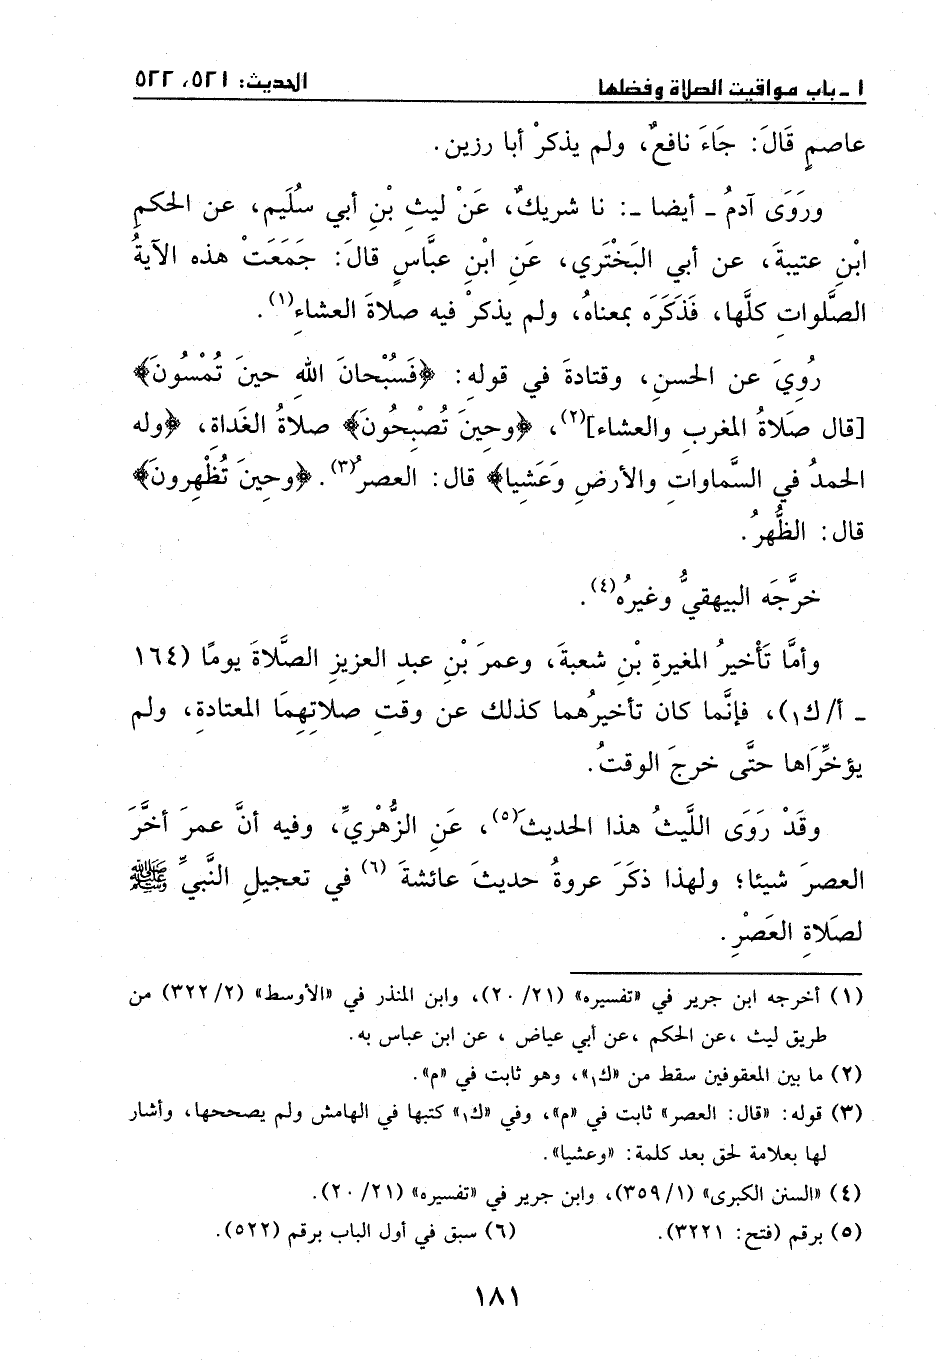 ١ ـ باب مواقيت الصلاة وفضلها الحديث: ٥٢١، ٥٢٢
عاصمٍ قَالَ: جَاءَ نافعٌ، ولم يذكرْ أبا رزين.
ورَوَى آدمُ ـ أيضا ـ: نا شريكٌ، عَنْ ليثِ بْنِ أبي سُلَيم، عن الحكمِ
ابْنِ عتيبةَ، عن أبي البَخْتَري، عَنِ ابْنِ عبَّاسٍ قالَ: جَمَعَتْ هذه الآيةُ
الصَّلواتِ كلَّها، فَذَكَرَه بمعناهُ، ولم يذكرْ فيه صلاةَ العشاءِ(١).
رُوِيَ عن الحسنِ، وقتادةَ في قولِه: ﴿فَسُبْحانَ اللهِ حينَ تُمْسُونَ﴾
[قال صَلاةُ المغربِ والعشاء](٢)، ﴿وحينَ تُصْبِحُونَ﴾ صلاةُ الغَداةِ، ﴿وله
الحمدُ في السَّماواتِ والأرضِ وَعَشِيا﴾ قال: العصرُ(٣). ﴿وحِينَ تُظْهِرونَ﴾
قال: الظُّهرُ.
خرَّجَه البيهقيُّ وغيرُه(٤).
وأمَّا تَأْخيرُ المغيرةِ بْنِ شعبةَ، وعمرَ بْنِ عبدِ العزيزِ الصَّلاةَ يومًا (١٦٤
ـ أ/ ك١)، فإنَّما كان تأخيرُهما كذلك عن وقتِ صلاتِهِمَا المعتادةِ، ولم
يؤخِّرَاها حتَّى خرجَ الوقتُ.
وقَدْ رَوَى الليثُ هذا الحديثَ(٥)، عَنِ الزُّهْريِّ، وفيه أنَّ عمرَ أخَّرَ
العصرَ شيئا؛ ولهذا ذكَرَ عروةُ حديثَ عائشةَ (٦) في تعجيلِ النَّبيِّ ﷺ
لصَلاةِ العَصْرِ.
(١) أخرجه ابن جرير في «تفسيره» (٢٠/٢١)، وابن المنذر في «الأوسط» (٣٢٢/٢) من
طريق ليث ،عن الحكم ،عن أبي عياض ، عن ابن عباس به.
(٢) ما بين المعقوفين سقط من «ك١»، وهو ثابت في «م».
(٣) قوله: «قال: العصر» ثابت في «م»، وفي «ك١» كتبها في الهامش ولم يصححها، وأشار
لها بعلامة لحق بعد كلمة: «وعشيا».
(٤) «السنن الكبرى» (٣٥٩/١)، وابن جرير في «تفسيره» (٢٠/٢١).
(٥) برقم (فتح: ٣٢٢١). (٦) سبق في أول الباب برقم (٥٢٢).
١٨١